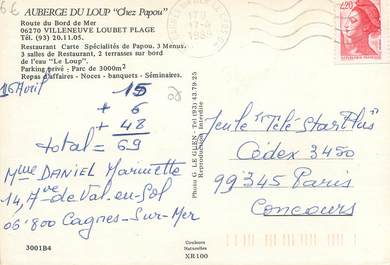 6€
AUBERGE DU LOUP "Chez Papou"
Route du Bord de Mer
06270 VILLENEUVE LOUBET PLAGE
Tél. (93) 20.11.05.
Restaurant Carte Spécialités de Papou. 3 Menus.
3 salles de Restaurant, 2 terrasses sur bord
de l'eau "Le Loup".
Parking privé : Parc de 3000m²
Repas d'affaires - Noces - banquets - Séminaires.
16 Avril
15
+ 6
+ 48
total = 69
Mme DANIEL
14, Ave de Val-en-Sol
06800 Cagnes-Sur-Mer
3001B4
Photo G. LE GUEN - Tél (93) 43.79.25
Reproduction Interdite
Couleurs
Naturelles
XR100
17 H
17-4
2,20
Jeu "Télé Star Plus"
Cédex 3400
99345 Paris
Concours